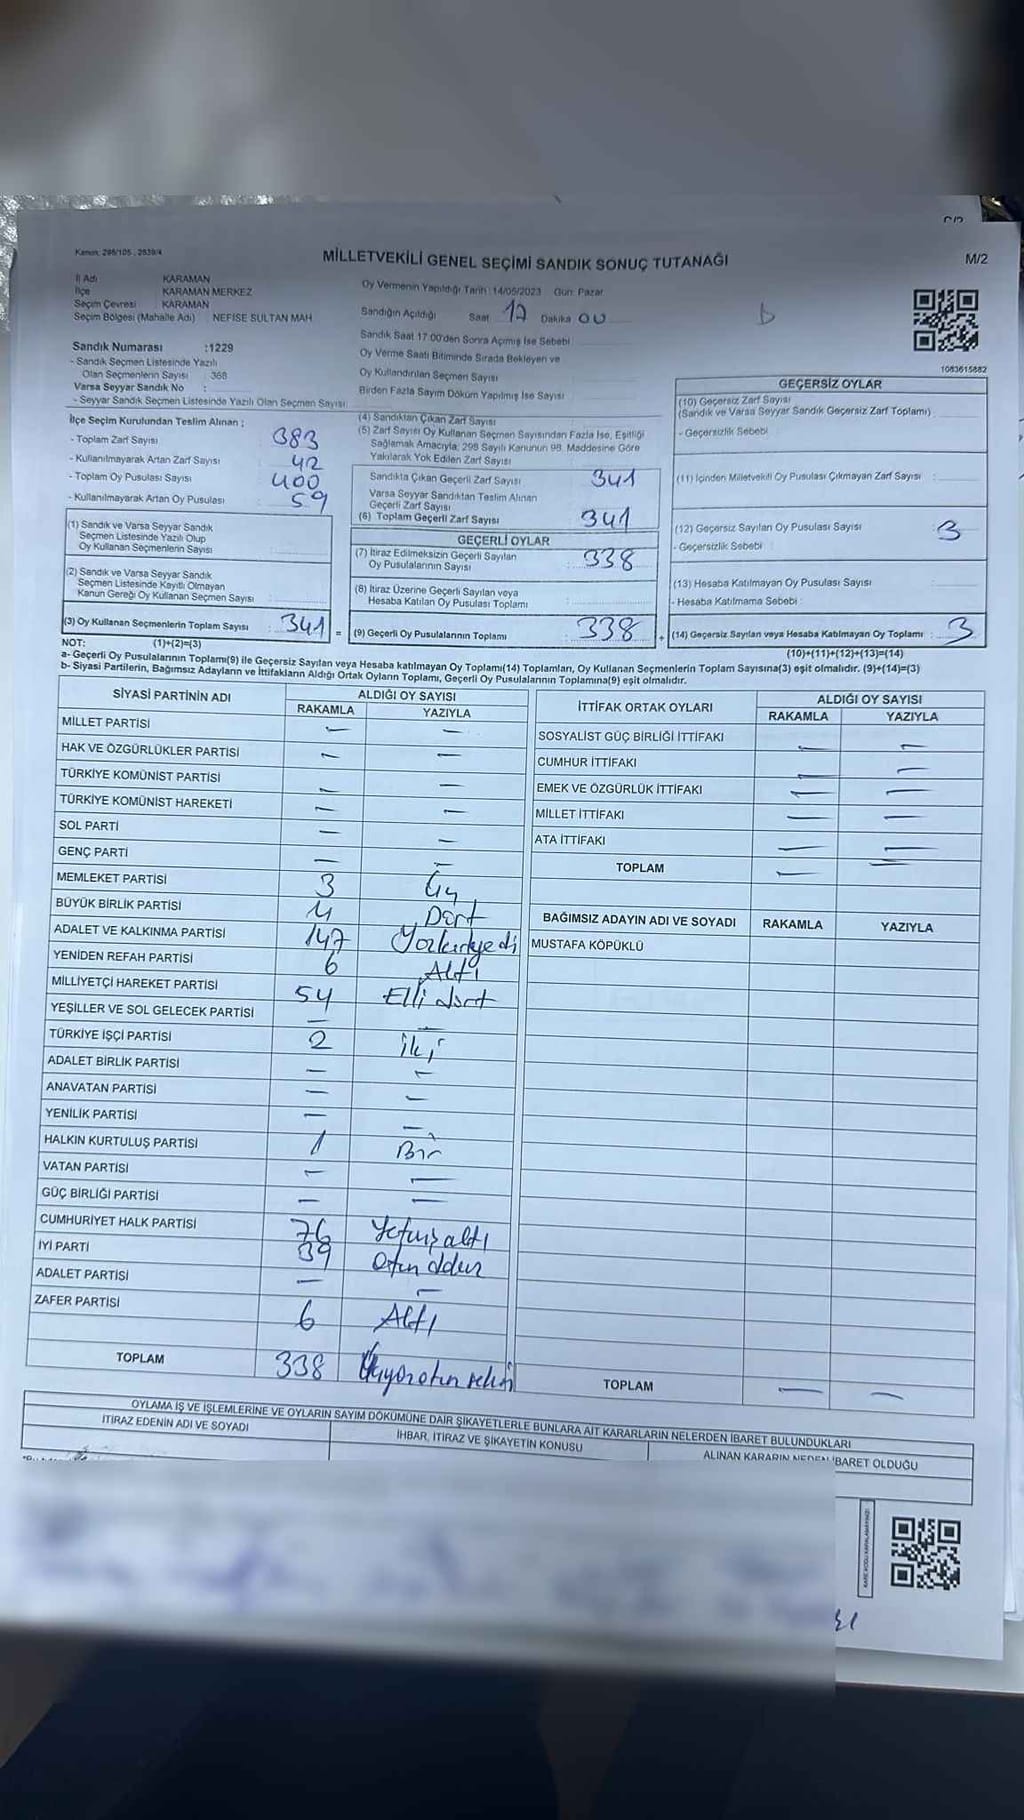 C/2
Kanun: 298/105 , 2839/4
MİLLETVEKİLİ GENEL SEÇİMİ SANDIK SONUÇ TUTANAĞI
M/2
İl Adı KARAMAN
İlçe KARAMAN MERKEZ
Seçim Çevresi KARAMAN
Seçim Bölgesi (Mahalle Adı) NEFİSE SULTAN MAH
Oy Vermenin Yapıldığı Tarih : 14/05/2023 Gün: Pazar
Sandığın Açıldığı Saat 17 Dakika 00
Sandık Saat 17:00'den Sonra Açımış İse Sebebi
Oy Verme Saati Bitiminde Sırada Bekleyen ve
Oy Kullandırılan Seçmen Sayısı
Birden Fazla Sayım Döküm Yapılmış İse Sayısı
1083615882
Sandık Numarası :1229
- Sandık Seçmen Listesinde Yazılı
Olan Seçmenlerin Sayısı : 368
Varsa Seyyar Sandık No :
- Seyyar Sandık Seçmen Listesinde Yazılı Olan Seçmen Sayısı
İlçe Seçim Kurulundan Teslim Alınan ;
- Toplam Zarf Sayısı 383
- Kullanılmayarak Artan Zarf Sayısı 42
- Toplam Oy Pusulası Sayısı 400
- Kullanılmayarak Artan Oy Pusulası 59
(1) Sandık ve Varsa Seyyar Sandık
Seçmen Listesinde Yazılı Olup
Oy Kullanan Seçmenlerin Sayısı
(2) Sandık ve Varsa Seyyar Sandık
Seçmen Listesinde Kayıtlı Olmayan
Kanun Gereği Oy Kullanan Seçmen Sayısı
(3) Oy Kullanan Seçmenlerin Toplam Sayısı : 341 =
(4) Sandıktan Çıkan Zarf Sayısı
(5) Zarf Sayısı Oy Kullanan Seçmen Sayısından Fazla İse, Eşitliği
Sağlamak Amacıyla; 298 Sayılı Kanunun 98. Maddesine Göre
Yakılarak Yok Edilen Zarf Sayısı
Sandıkta Çıkan Geçerli Zarf Sayısı 341
Varsa Seyyar Sandıktan Teslim Alınan
Geçerli Zarf Sayısı
(6) Toplam Geçerli Zarf Sayısı 341
GEÇERLİ OYLAR
(7) İtiraz Edilmeksizin Geçerli Sayılan
Oy Pusulalarının Sayısı 338
(8) İtiraz Üzerine Geçerli Sayılan veya
Hesaba Katılan Oy Pusulası Toplamı
(9) Geçerli Oy Pusulalarının Toplamı 338 +
GEÇERSİZ OYLAR
(10) Geçersiz Zarf Sayısı
(Sandık ve Varsa Seyyar Sandık Geçersiz Zarf Toplamı)
- Geçersizlik Sebebi
(11) İçinden Milletvekili Oy Pusulası Çıkmayan Zarf Sayısı :
(12) Geçersiz Sayılan Oy Pusulası Sayısı : 3
- Geçersizlik Sebebi :
(13) Hesaba Katılmayan Oy Pusulası Sayısı
- Hesaba Katılmama Sebebi :
(14) Geçersiz Sayılan veya Hesaba Katılmayan Oy Toplamı : 3
NOT: (1)+(2)=(3) (10)+(11)+(12)+(13)=(14)
a- Geçerli Oy Pusulalarının Toplamı(9) ile Geçersiz Sayılan veya Hesaba katılmayan Oy Toplamı(14) Toplamları, Oy Kullanan Seçmenlerin Toplam Sayısına(3) eşit olmalıdır. (9)+(14)=(3)
b- Siyasi Partilerin, Bağımsız Adayların ve İttifakların Aldığı Ortak Oyların Toplamı, Geçerli Oy Pusulalarının Toplamına(9) eşit olmalıdır.
SİYASİ PARTİNİN ADI ALDIĞI OY SAYISI
RAKAMLA YAZIYLA
MİLLET PARTİSİ — —
HAK VE ÖZGÜRLÜKLER PARTİSİ — —
TÜRKİYE KOMÜNİST PARTİSİ — —
TÜRKİYE KOMÜNİST HAREKETİ — —
SOL PARTİ — —
GENÇ PARTİ — —
MEMLEKET PARTİSİ 3 Üç
BÜYÜK BİRLİK PARTİSİ 4 Dört
ADALET VE KALKINMA PARTİSİ 147 Yüzkırkyedi
YENİDEN REFAH PARTİSİ 6 Altı
MİLLİYETÇİ HAREKET PARTİSİ 54 Elli dört
YEŞİLLER VE SOL GELECEK PARTİSİ — —
TÜRKİYE İŞÇİ PARTİSİ 2 İki
ADALET BİRLİK PARTİSİ — —
ANAVATAN PARTİSİ — —
YENİLİK PARTİSİ — —
HALKIN KURTULUŞ PARTİSİ 1 Bir
VATAN PARTİSİ — —
GÜÇ BİRLİĞİ PARTİSİ — —
CUMHURİYET HALK PARTİSİ 76 Yetmiş altı
İYİ PARTİ 39 Otuz dokuz
ADALET PARTİSİ — —
ZAFER PARTİSİ 6 Altı
TOPLAM 338 Üçyüzotuz sekiz
İTTİFAK ORTAK OYLARI ALDIĞI OY SAYISI
RAKAMLA YAZIYLA
SOSYALİST GÜÇ BİRLİĞİ İTTİFAKI — —
CUMHUR İTTİFAKI — —
EMEK VE ÖZGÜRLÜK İTTİFAKI — —
MİLLET İTTİFAKI — —
ATA İTTİFAKI — —
TOPLAM — —
BAĞIMSIZ ADAYIN ADI VE SOYADI RAKAMLA YAZIYLA
MUSTAFA KÖPÜKLÜ
TOPLAM — —
OYLAMA İŞ VE İŞLEMLERİNE VE OYLARIN SAYIM DÖKÜMÜNE DAİR ŞİKAYETLERLE BUNLARA AİT KARARLARIN NELERDEN İBARET BULUNDUKLARI
İTİRAZ EDENİN ADI VE SOYADI İHBAR, İTİRAZ VE ŞİKAYETİN KONUSU ALINAN KARARIN NEDEN İBARET OLDUĞU